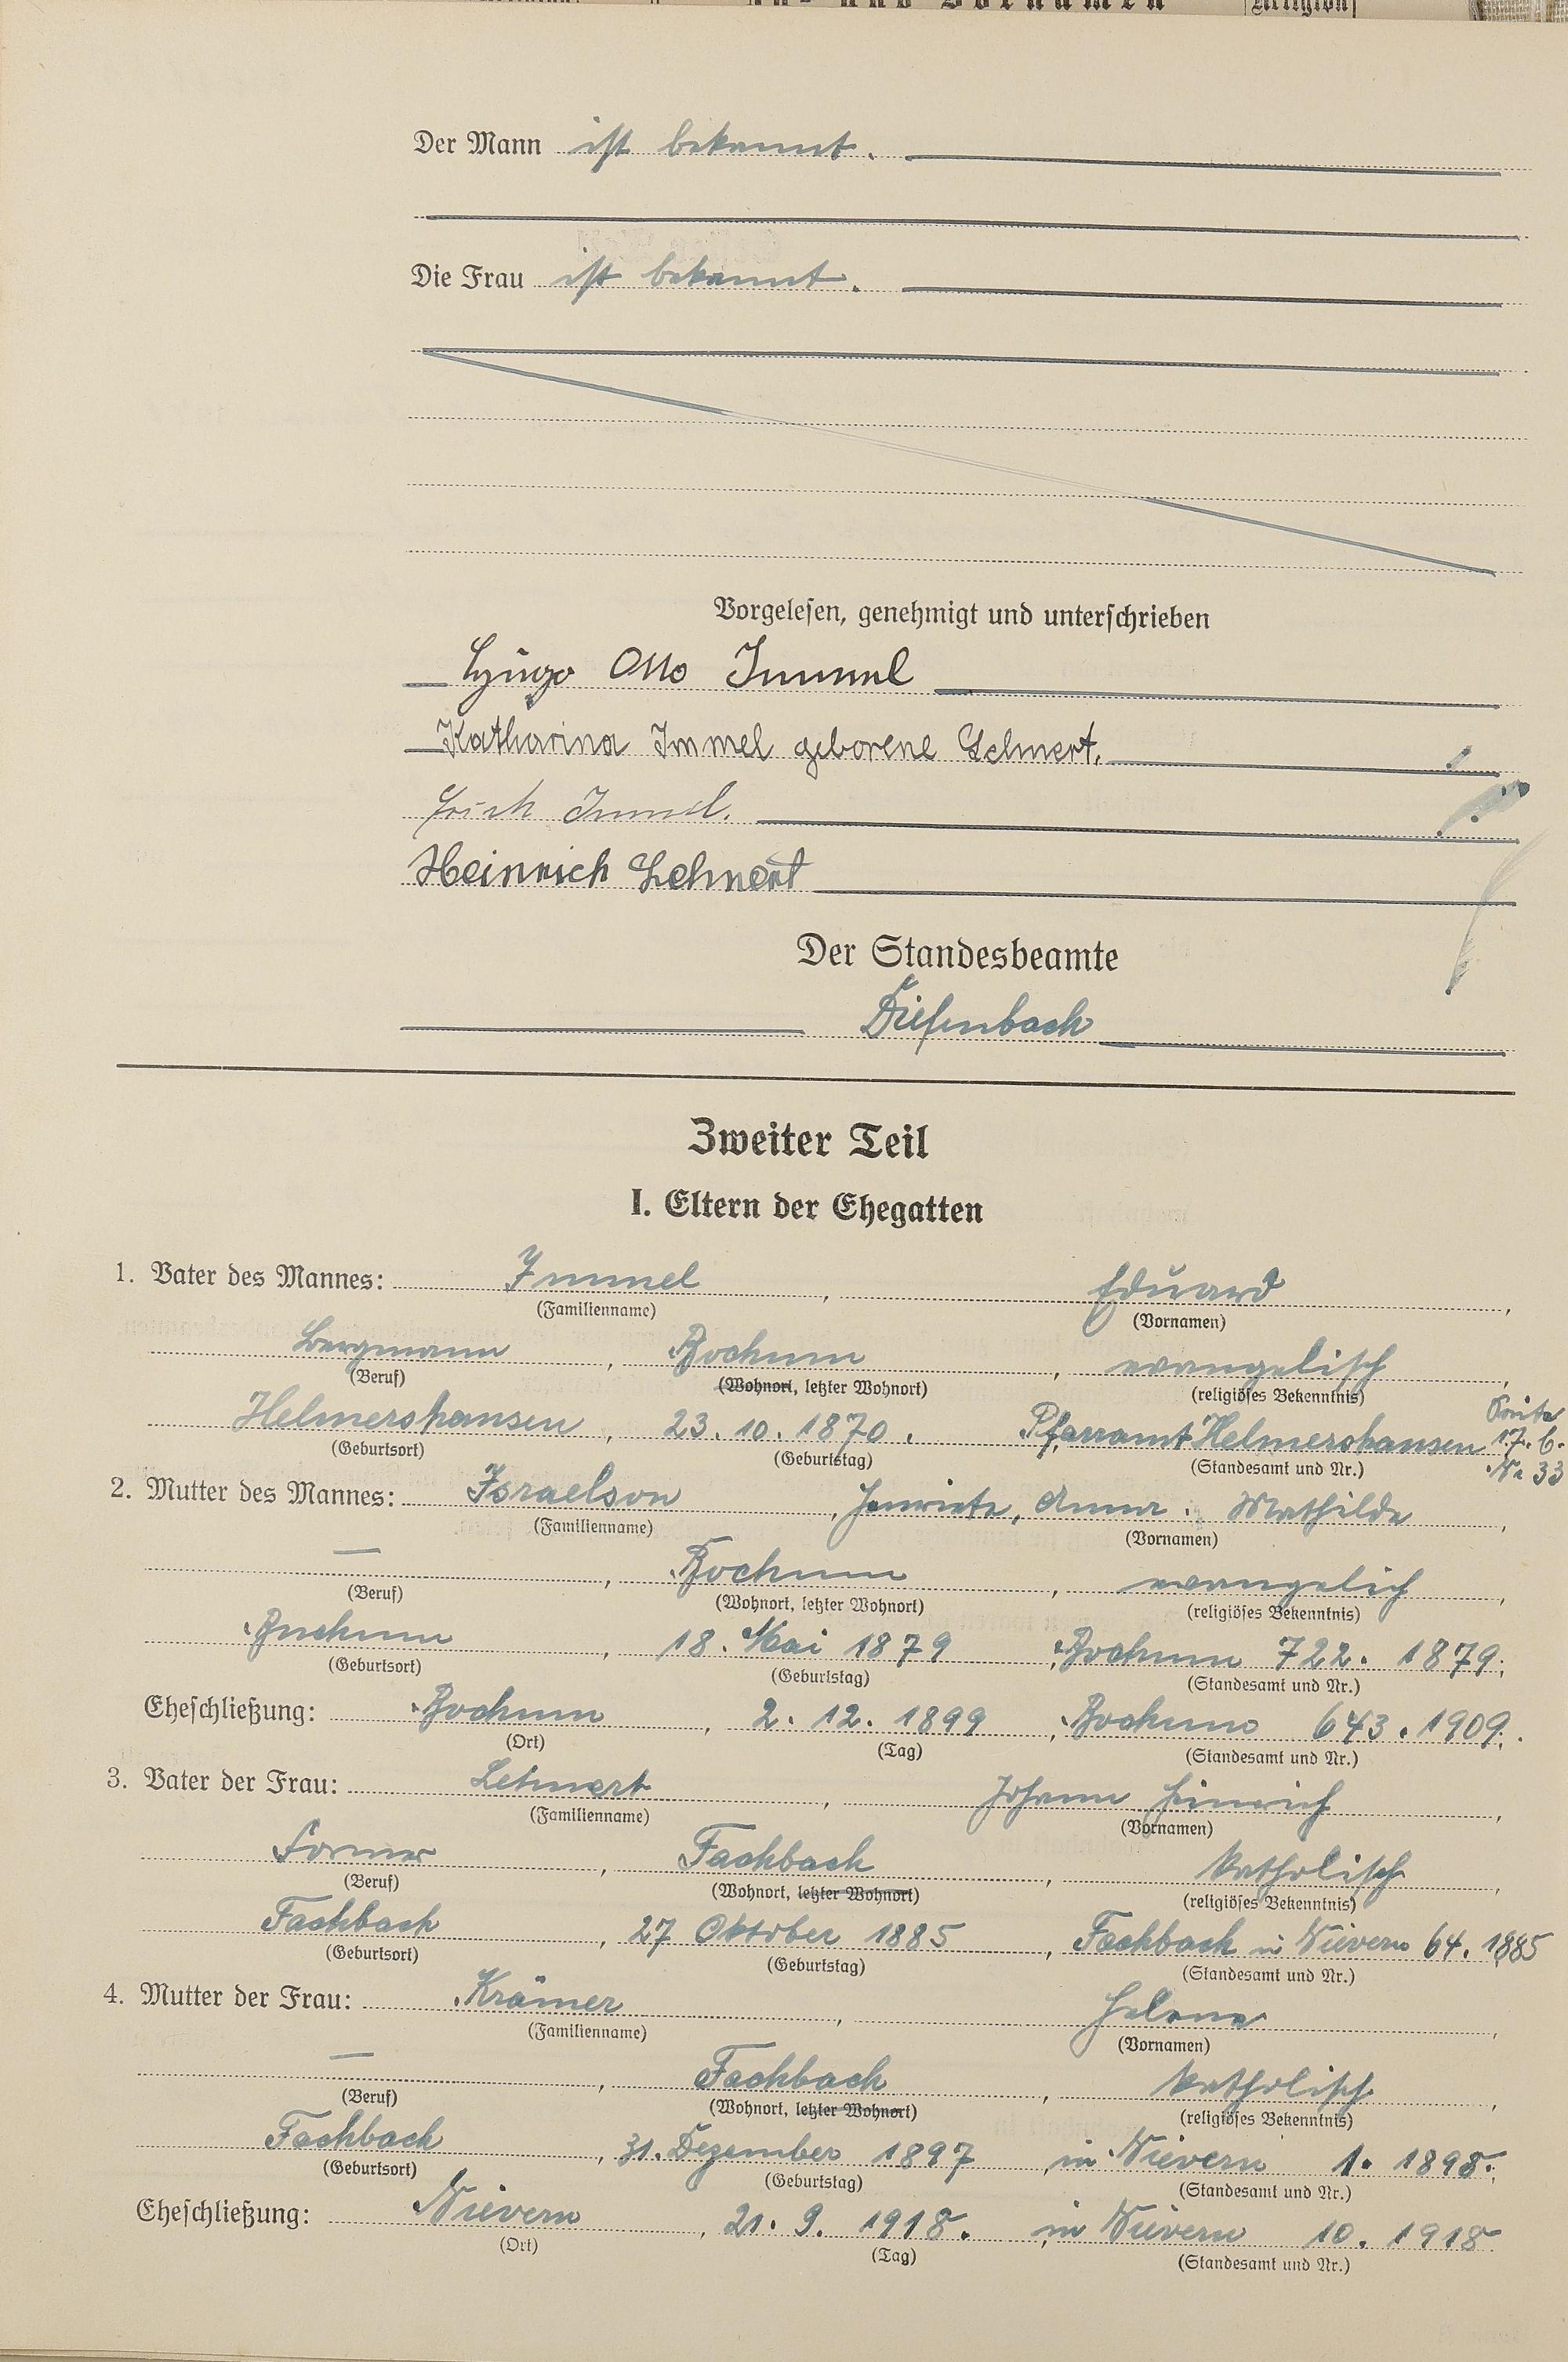 Vor- und Vornamen Religion
Der Mann ist bekannt.
Die Frau ist bekannt.
Vorgelesen, genehmigt und unterschrieben
Hugo Otto Immel
Katharina Immel geborene Lehnert.
Erich Immel.
Heinrich Lehnert
Der Standesbeamte
Diefenbach
Zweiter Teil
I. Eltern der Ehegatten
1. Vater des Mannes: Immel, Eduard,
(Familienname) (Vornamen)
Bergmann, Bochum, evangelisch,
(Beruf) (Wohnort, letzter Wohnort) (religiöses Bekenntnis)
Helmershausen, 23. 10. 1870. Pfarramt Helmershausen Seite 17. b. Nr 33
(Geburtsort) (Geburtstag) (Standesamt und Nr.)
2. Mutter des Mannes: Israelson, Henriete, Anna Mathilde,
(Familienname) (Vornamen)
—, Bochum, evangelich,
(Beruf) (Wohnort, letzter Wohnort) (religiöses Bekenntnis)
Bochum, 18. Mai 1879, Bochum 722. 1879.
(Geburtsort) (Geburtstag) (Standesamt und Nr.)
Eheschließung: Bochum, 2. 12. 1899, Bochum 643. 1909.
(Ort) (Tag) (Standesamt und Nr.)
3. Vater der Frau: Lehnert, Johann Heinrich,
(Familienname) (Vornamen)
Former, Fachbach, katholisch,
(Beruf) (Wohnort, letzter Wohnort) (religiöses Bekenntnis)
Fachbach, 27 Oktober 1885, Fachbach in Nievern 64. 1885
(Geburtsort) (Geburtstag) (Standesamt und Nr.)
4. Mutter der Frau: Krämer, Helena,
(Familienname) (Vornamen)
—, Fachbach, katholisch,
(Beruf) (Wohnort, letzter Wohnort) (religiöses Bekenntnis)
Fachbach, 31. Dezember 1897, in Nievern 1. 1898.
(Geburtsort) (Geburtstag) (Standesamt und Nr.)
Eheschließung: Nievern, 21. 9. 1918. in Nievern 10. 1918
(Ort) (Tag) (Standesamt und Nr.)